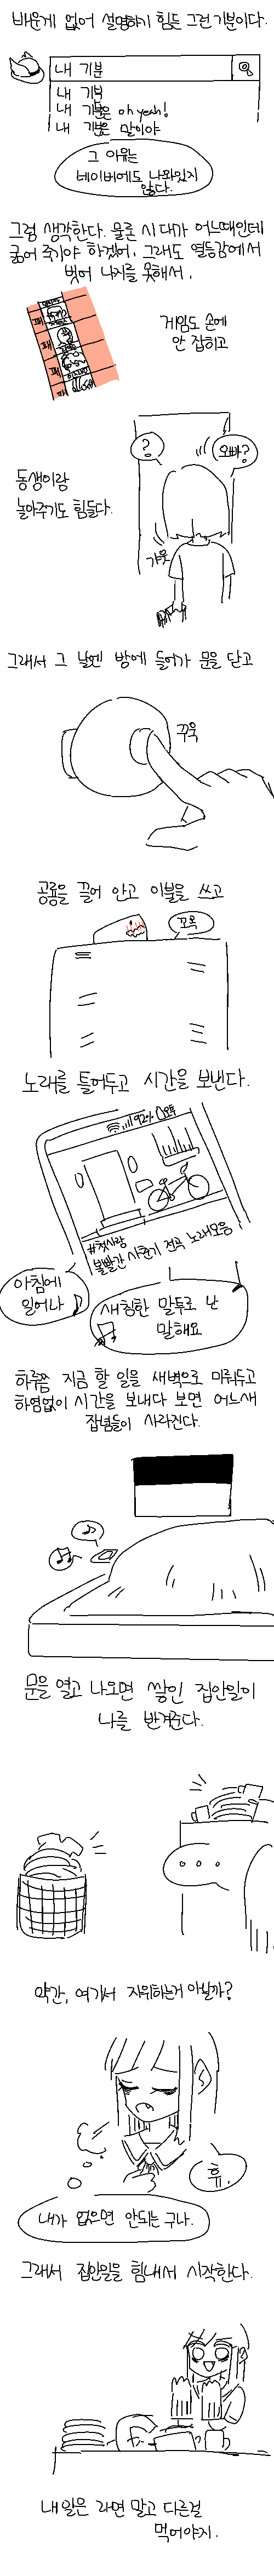 배운게 없어 설명하기 힘든 그런 기분이다.
내 기분
내 기부
내 기분은 oh yeah!
내 기분은 말이야
그 이유는
네이버에도 나와있지
않다.
그럼 생각한다. 물론 시대가 어느때인데
굶어 죽기야 하겠어, 그래도 열등감에서
벗어 나지를 못해서,
게임도 손에
안 잡히고
?
오빠?
동생이랑
놀아주기도 힘들다.
갸웃
그래서 그 날엔 방에 들어가 문을 닫고
꾸욱
공룡을 끌어 안고 이불을 쓰고
꼬옥
노래를 틀어두고 시간을 보낸다.
92%
#첫사랑
볼빨간 사춘기 전곡 노래모음
아침에
일어나
새침한 말투로 난
말해요
하루쯤 지금 할 일을 새벽으로 미뤄두고
하염없이 시간을 보내다 보면 어느새
잡념들이 사라진다.
문을 열고 나오면 쌓인 집안일이
나를 반겨준다.
...
약간, 여기서 자위하는거 아닐까?
휴,
내가 없으면 안되는 구나.
그래서 집안일을 힘내서 시작한다.
내일은 라면 말고 다른걸
먹어야지.